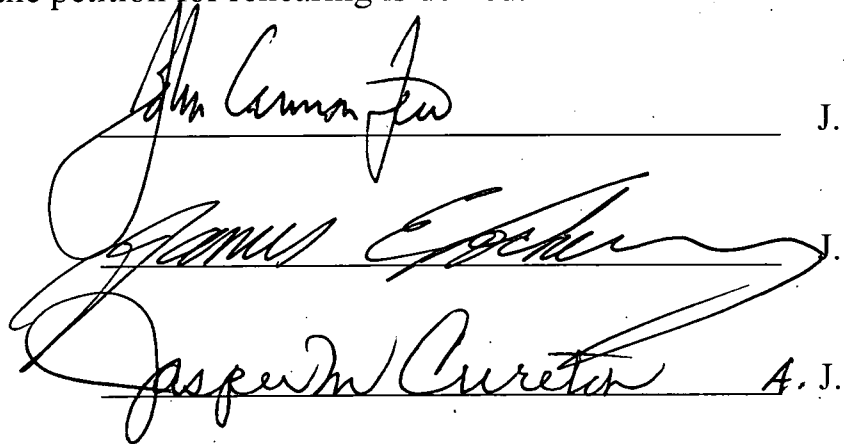 the petition for rehearing is denied.
John Cannon Few J.
James E. Lockemy J.
Jasper M Cureton A. J.